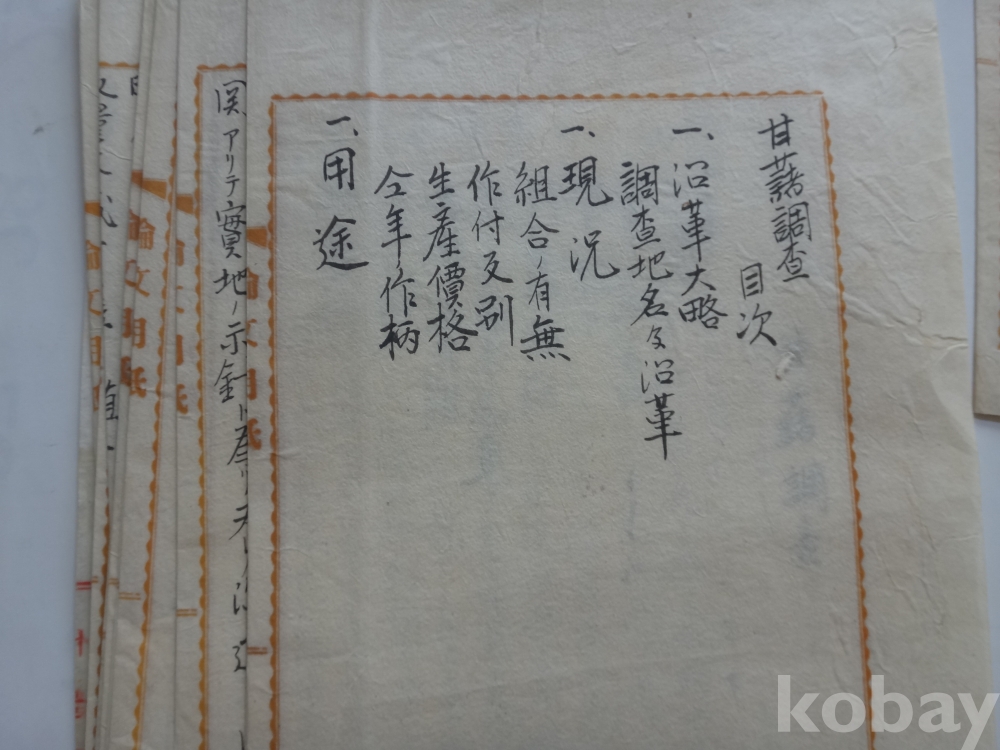 甘藷調査
目次
一、沿革大略
調査地名及沿革
一、現況
組合ノ有無
作付反別
生産價格
仝年作柄
一、用途
関アリテ實地ノ示針ト
論文用紙
kobay